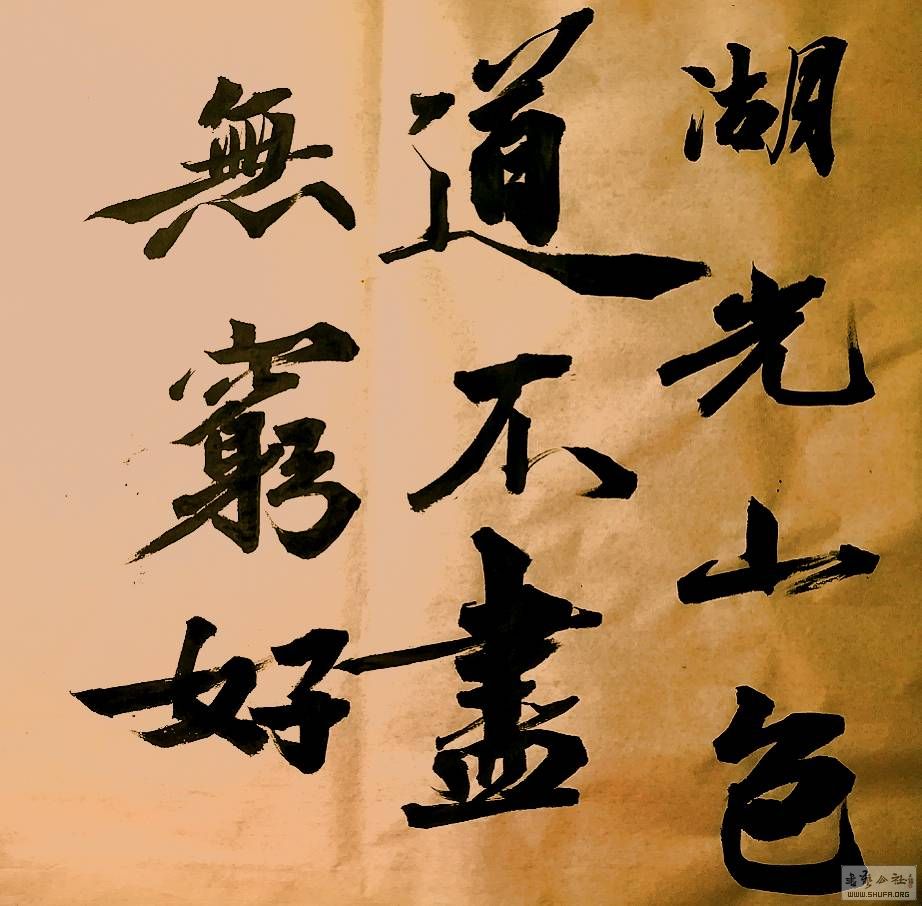 湖光山色
道不盡
無窮好
WWW.SHUFA.ORG